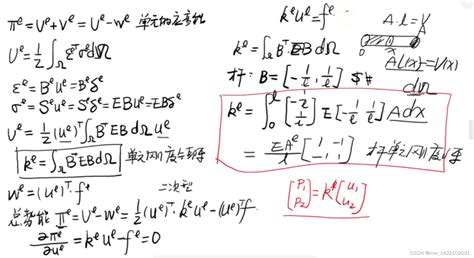 πᵉ = Uᵉ + Vᵉ = Uᵉ - Wᵉ 单元的应变能
Uᵉ = 1/2 ∫_Ω εᵀσ dΩ
εᵉ = Bᵉuᵉ = Bδᵉ
σᵉ = Sᵉuᵉ = Sᵉδᵉ = EBuᵉ = EBδᵉ
Uᵉ = 1/2 (uᵉ)ᵀ ∫_Ω BᵀEB dΩ uᵉ
kᵉ = ∫_Ω BᵀEB dΩ 单元刚度
Wᵉ = (uᵉ)ᵀ·fᵉ 二次型
总势能 πᵉ = Uᵉ - Wᵉ = 1/2 (uᵉ)ᵀ·kᵉuᵉ - (uᵉ)ᵀf
∂πᵉ/∂uᵉ = kᵉuᵉ - fᵉ = 0
kᵉuᵉ = fᵉ
kᵉ = ∫_Ω Bᵀ·EB dΩ
杆: B = [-1/l, 1/l]
A·l = V
x
A(x) = V(x)
dΩ
kᵉ = ∫₀ˡ [-1/l; 1/l] E [-1/l 1/l] A dx
= EAᵉ/l [1 -1; -1 1] 杆单元刚度
[P₁; P₂] = kᵉ [u₁; u₂]